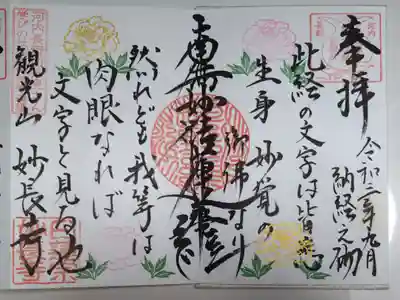 奉拝
令和二年九月
納経之砌
此経の文字は皆悉
生身妙覚の
御佛なり
南無妙法蓮華経
然れども我等は
肉眼なれば
文字と見る也
観光山 妙長寺